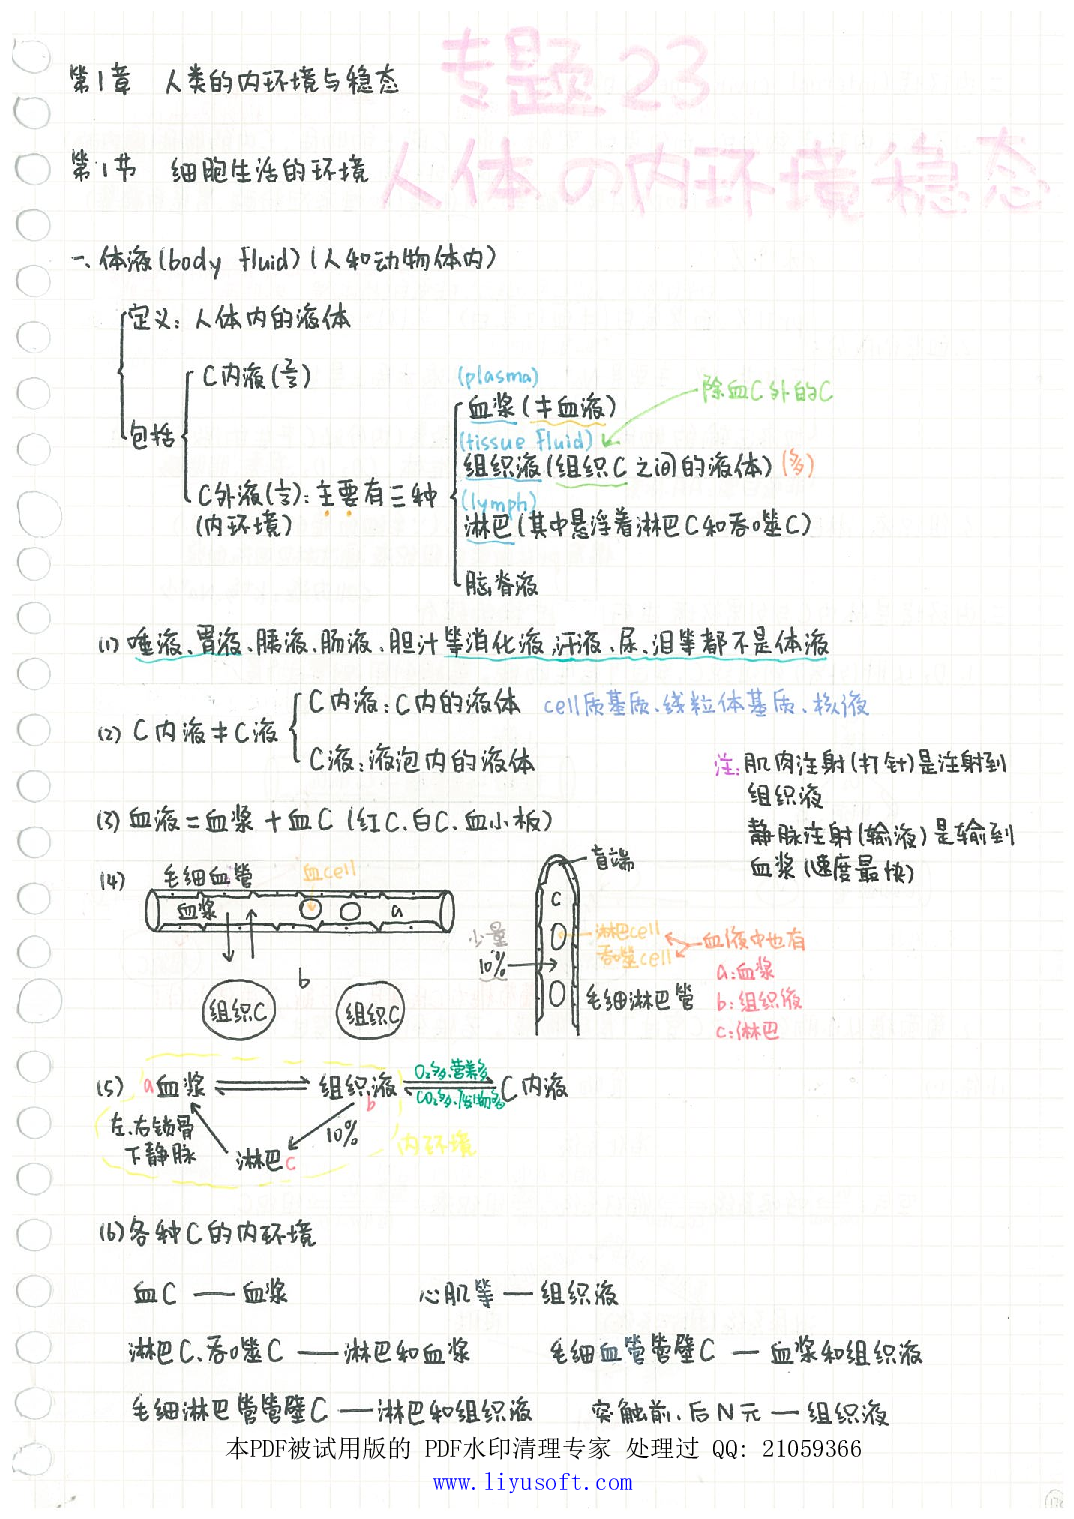 专题23
第1章 人类的内环境与稳态
人体の内环境稳态
第1节 细胞生活的环境
一、体液(body fluid)(人和动物体内)
定义: 人体内的液体
包括
C内液(2/3)
C外液(1/3): 主要有三种
(内环境)
(plasma)
血浆(≠血液)
除血C外的C
(tissue fluid)
组织液(组织C之间的液体)(多)
(lymph)
淋巴(其中悬浮着淋巴C和吞噬C)
脑脊液
(1) 唾液、胃液、胰液、肠液、胆汁等消化液,汗液、尿、泪等都不是体液
(2) C内液≠C液
C内液: C内的液体 cell质基质、线粒体基质、核液
C液: 液泡内的液体
注: 肌肉注射(打针)是注射到
组织液
静脉注射(输液)是输到
血浆(速度最快)
(3) 血液=血浆+血C (红C.白C.血小板)
(4) 毛细血管
血cell
血浆
a
b
组织C
组织C
盲端
c
少量
10%
淋巴cell
吞噬cell
血液中也有
毛细淋巴管
a:血浆
b:组织液
c:淋巴
(5) a血浆 组织液 C内液
b
O₂多、营养多
CO₂多、废物多
左、右锁骨
下静脉
10%
淋巴c
内环境
(6) 各种C的内环境
血C — 血浆 心肌等 — 组织液
淋巴C、吞噬C — 淋巴和血浆 毛细血管管壁C — 血浆和组织液
毛细淋巴管管壁C — 淋巴和组织液 突触前、后N元 — 组织液
本PDF被试用版的 PDF水印清理专家 处理过 QQ: 21059366
www.liyusoft.com